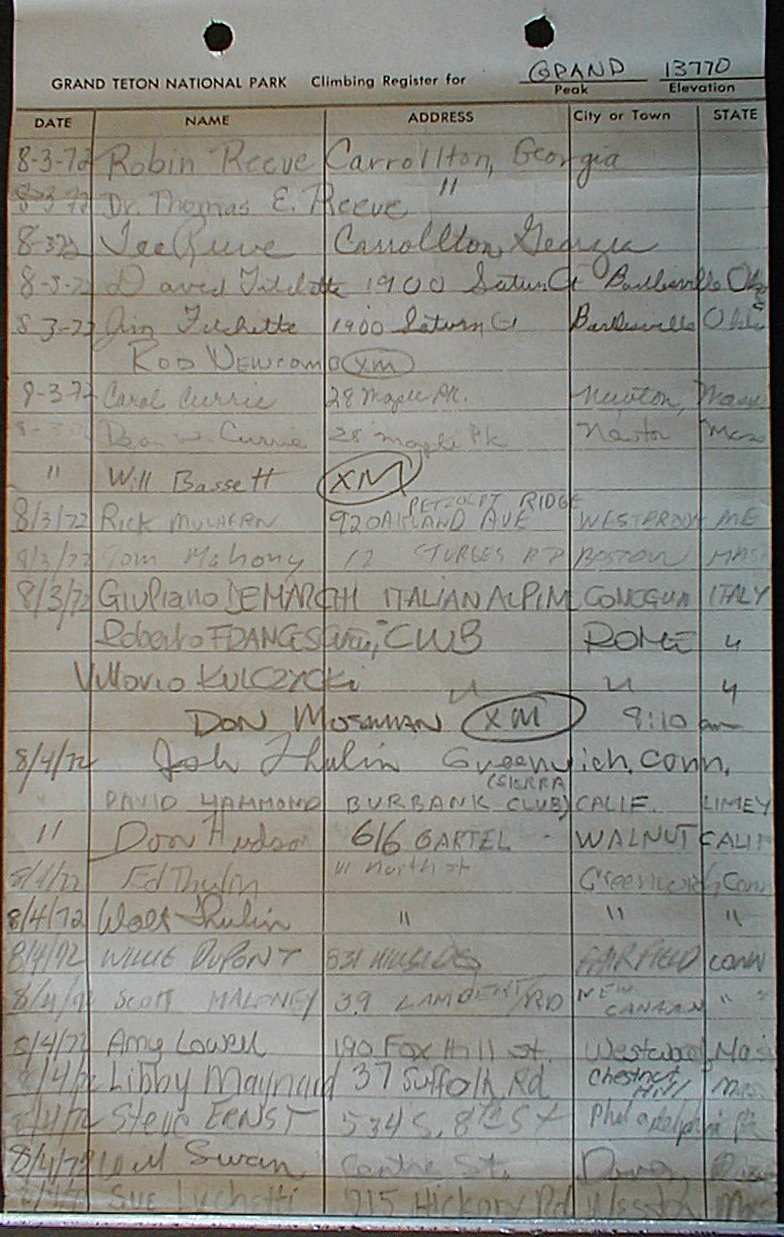 GRAND TETON NATIONAL PARK Climbing Register for GRAND 13770
Peak Elevation
DATE NAME ADDRESS City or Town STATE
8-3-72 Robin Reeve Carrollton, Georgia
8-3-72 Dr. Thomas E. Reeve "
8-3-72 Lee Reeve Carrollton Georgia
8-3-72 David 1900 Saturn Ct Bartlesville
8-3-72 Jim 1900 Saturn Ct Bartlesville Okla
ROD NEWCOMB XM
8-3-72 Carol Currie 28 Maple Pk. Newton, Mass
8-3- Dean W. Currie 28 Maple Pk Newton Mass
" Will Bassett XM
PETZOLDT RIDGE
8/3/72 RICK 92 OAKLAND AVE ME
8/3/72 Tom Mahony 12 STURGES RD BOSTON MASS
8/3/72 GIULIANO DEMARCHI ITALIAN ALPINE ITALY
Roberto CLUB ROME "
KULCZYCKI " " "
DON MOSSMAN XM 9:10 am
8/4/72 Josh Thulin Greenwich, Conn.
(SIERRA
" DAVID HAMMOND BURBANK CLUB) CALIF. LIMEY
" Don Hudson 616 GARTEL WALNUT CALIF
8/4/72 Ed Thulin North st Greenwich, Conn
8/4/72 Walt Thulin " " "
8/4/72 WILLIE DUPONT 831 HILLSIDE FAIRFIELD CONN
8/4/72 SCOTT MALONEY 39 LAMBERT RD NEW CANAAN " "
8/4/72 Amy Lowell 190 Fox Hill st. Westwood, Mass
8/4/72 Libby Maynard 37 Suffolk Rd Chestnut Hill Mass
8/4/72 STEVE ERNST 534 S. 8TH St Philadelphia Pa
8/4/72 Will Swan Centre St. Dover,
Sue Luchetti 215 Hickory Rd Weston